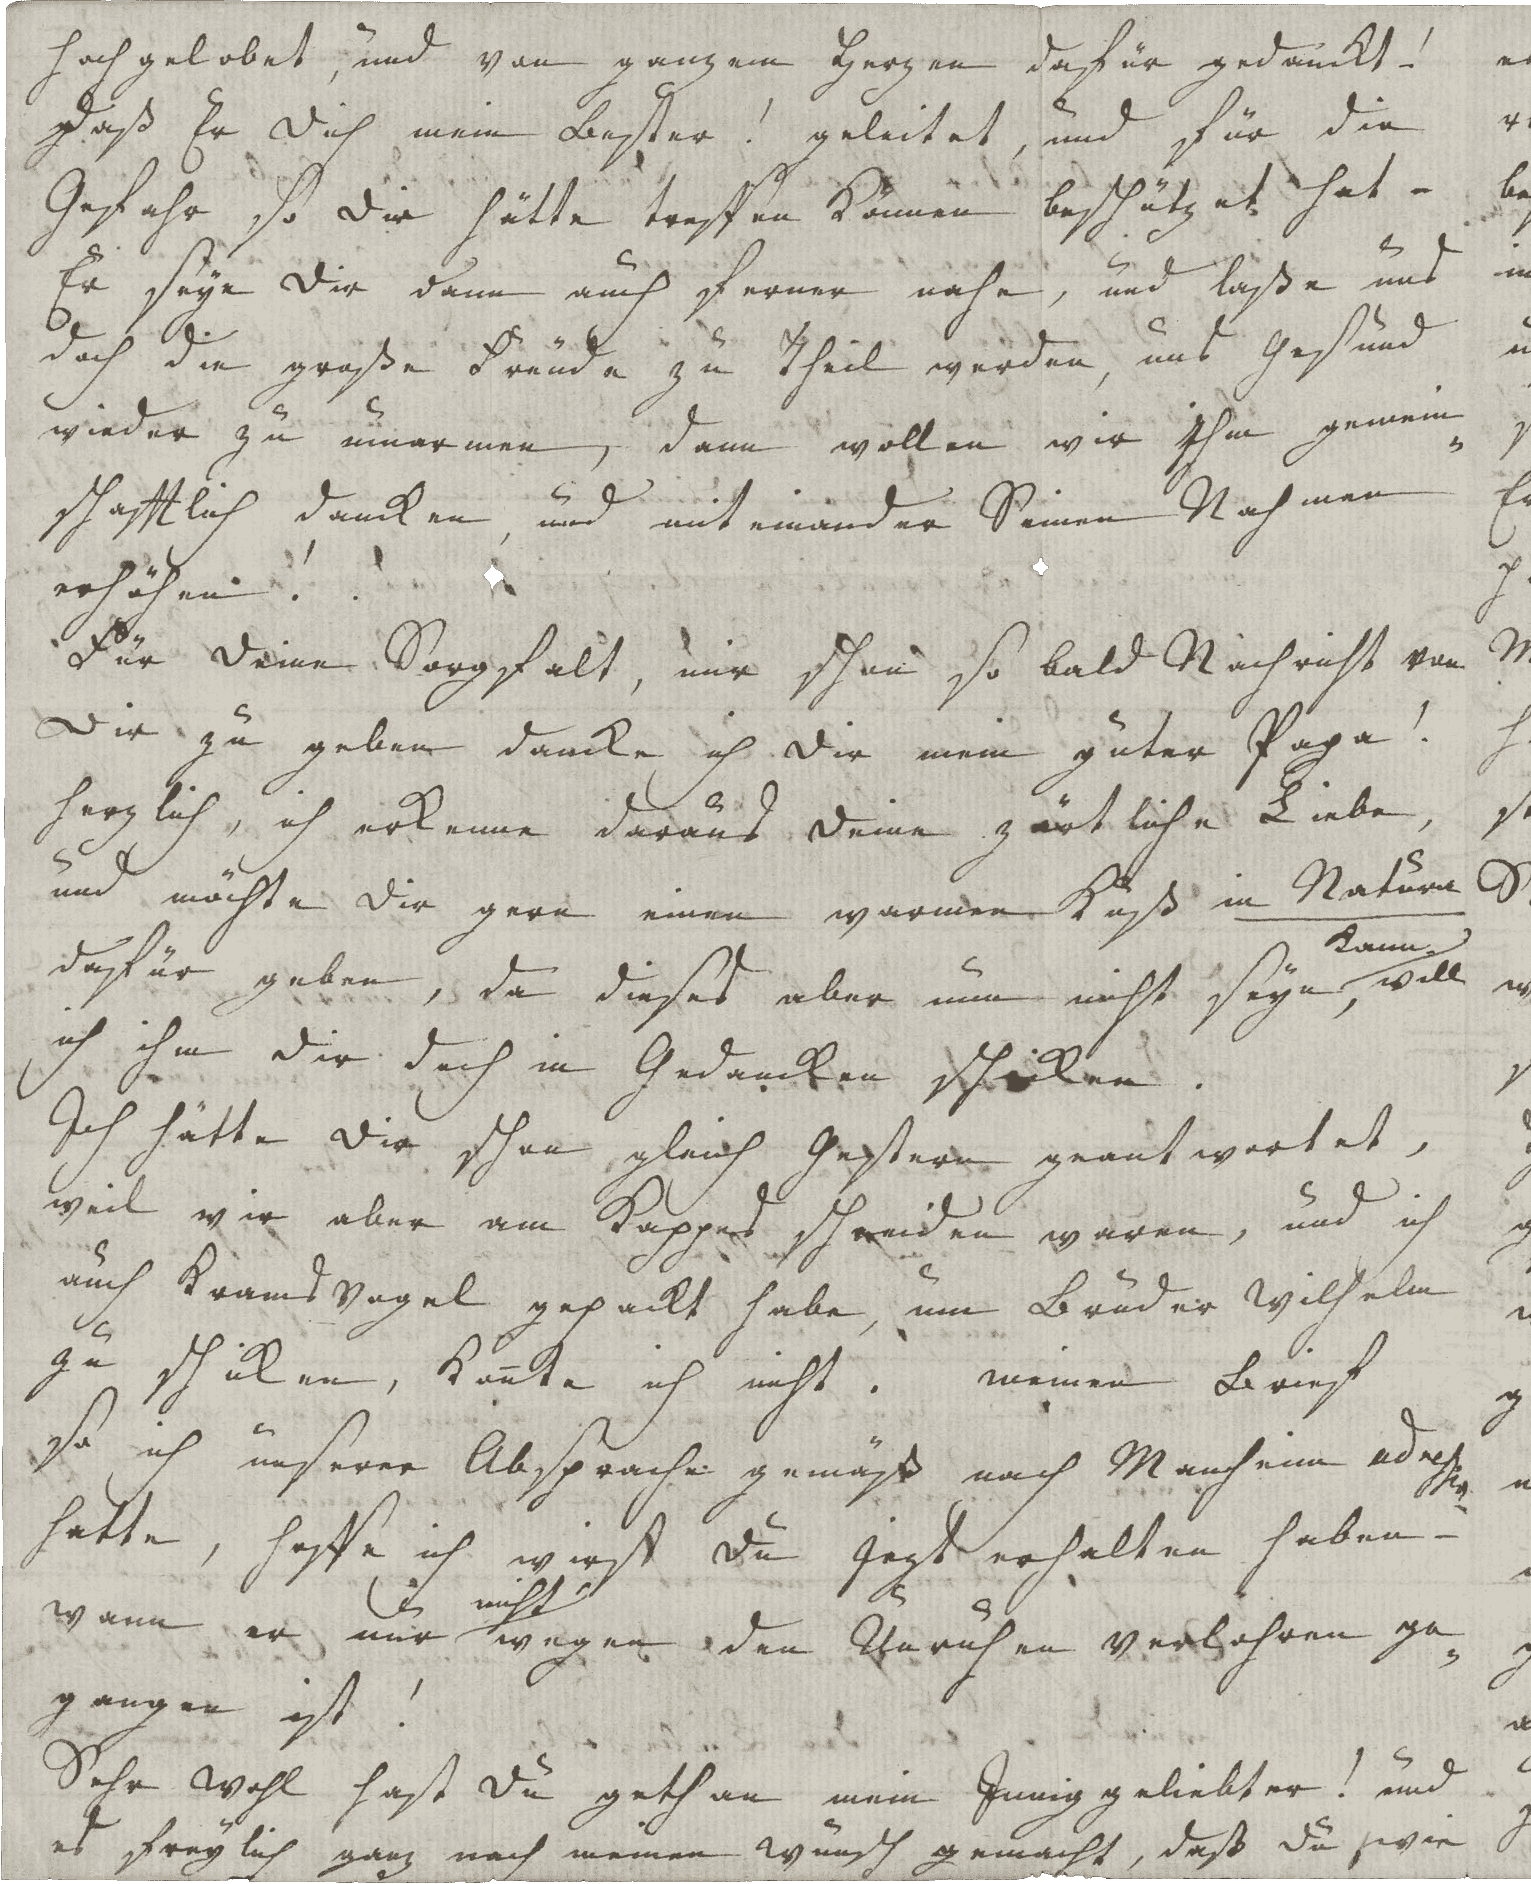 hochgelobet, und von ganzem Herzen dafür gedanckt!
Daß Er Dich mein Bester! geleitet, und für die
Gefahr so Dir hätte treffen können beschützet hat -
Er seye Dir dann auch ferner nahe, und laße uns
doch die große Freude zu Theil werden, uns Gesund
wieder zu umarmen, dann wollen wir Ihm gemein„
schafftlich dancken, und miteinander Seinen Nahmen
erhöhen!.
Für Deine Sorgfalt, mir schon so bald Nachricht von
Dir zu geben dancke ich Dir mein guter Papa!
herzlich, ich erkenne daraus Deine zärtliche Liebe,
und möchte Dir gern einen warmen Kuß in Natura
dafür geben, da dieses aber nun nicht seyn kann, will
ich ihm Dir doch in Gedancken schicken.
Ich hätte Dir schon gleich Gestern geantwortet,
weil wir aber am Kappes schneiden waren, und ich
auch Kramds Vogel gepackt habe, um Bruder Wilhelm
zu schicken, konte ich nicht. meinen Brief
so ich unserer Absprache gemäß nach Manheim adressir„
hatte, hoffe ich wirst Du jezt erhalten haben -
wann er nur nicht wegen den Unruhen verlohren ge„
gangen ist!
Sehr wohl hast Du gethan mein Innig geliebter! und
es freylich ganz nach meinen Wunsch gemacht, daß Du wie